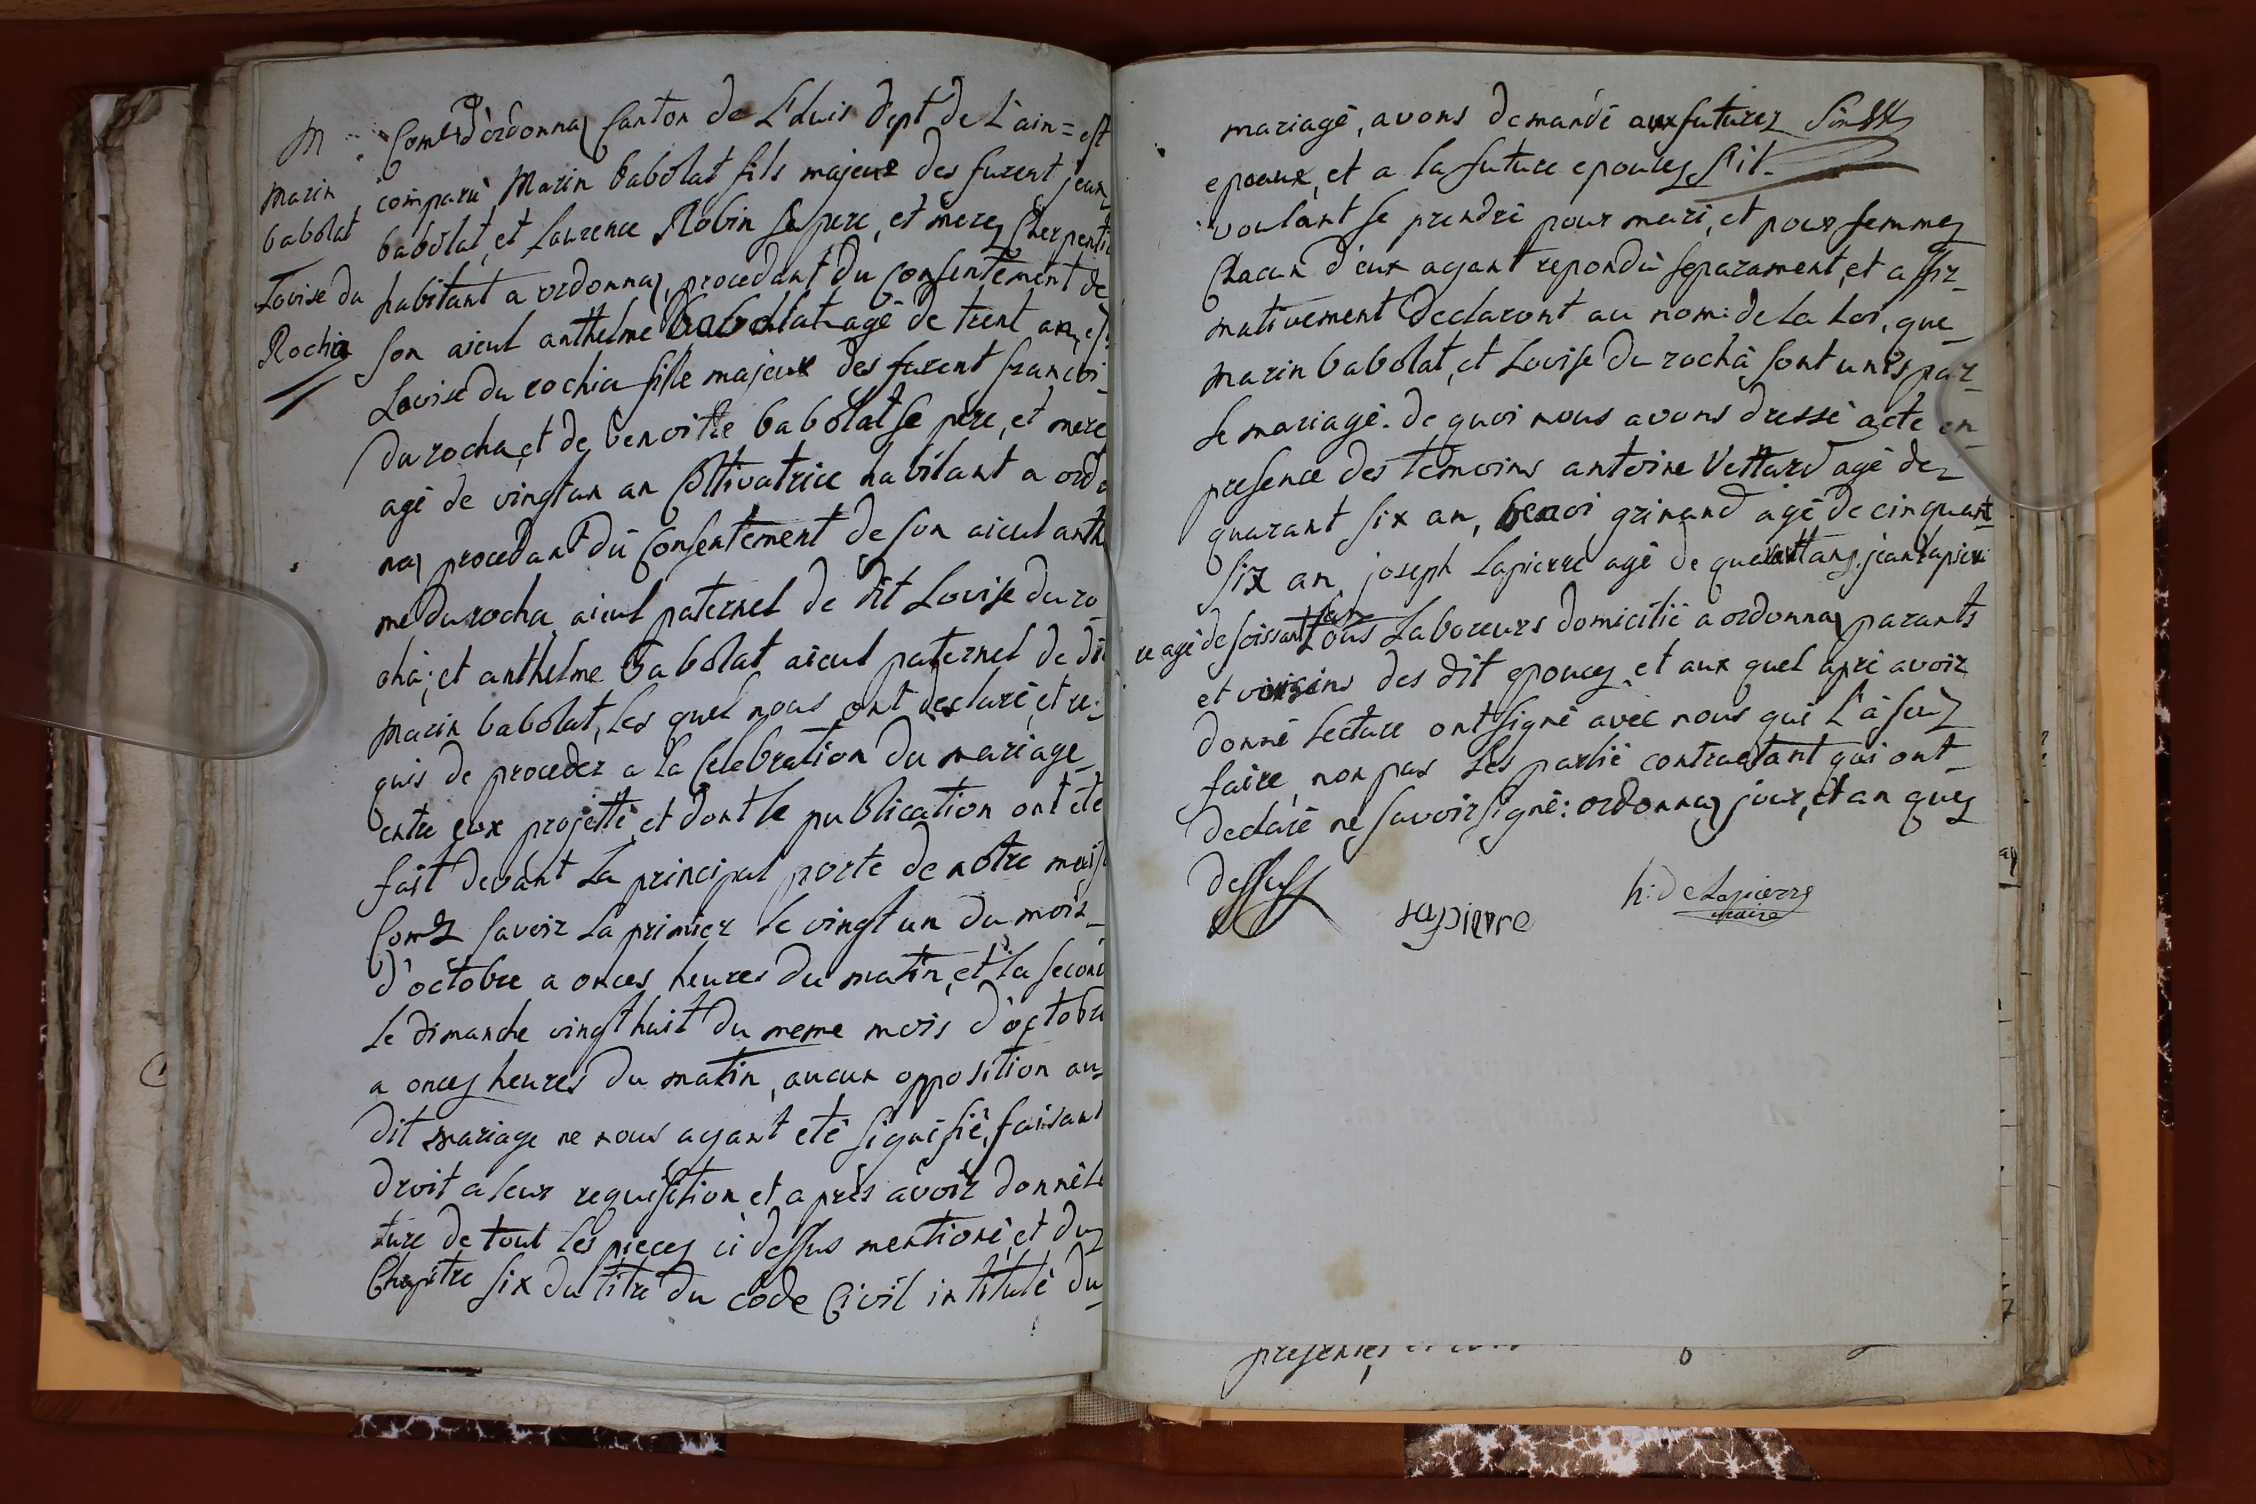 M
marin
babolat
Louise du
Rochia
Com.e d'ordonnaz Canton de L'huis dept de L'ain = est
comparu Marin babolat fils majeur des furent jean
babolat, et Laurence Robin Se pere, et merez Cherpentie
habitant a ordonnaz, procedant du Consentement de
son aieul anthelme babollat agé de trent an, et
Louise du rochia fille majeur des furent francoi-
du rocha, et de benoitte babolat se père, et mere
agé de vingt un an Coltivatrice habitant a ordo
naz procedant dû Consentement de son aieul anth
me du rocha aieul paternel de dit Louise du ro
cha; et anthelme babolat aieul paternel de dit
marin babolat, Les quel nous ont declaré, et re-
quis de proceder a la Celebration du mariage
entre eux projetté, et dont le publication ont été
fait devant La principal porte de notre mais
Com.e Savoir La primier le vingt un du mois
d'octobre a onces heures du matin, et La second
le dimanche vingt huit du meme mois d'octobre
a oncez heures du matin, aucun opposition au
dit mariage ne nous ayant eté Signifié, faisant
droit a leur requisition et après avoir donné le
ture de tout les piecez ci dessus mentioné, et du
Chapitre six du titre du code Civil intitulé du
mariagé, avons demandé aux futurez
epoeux, et a la future epousez S'il
voulant se prendre pour mari, et pour femmez
Chacun d'eux ayant repondû separament, et affir-
mativement declaront au nom: de la Loi, que
marin babolat, et Louise du rochâ sont unis par
le mariagé. de quoi nous avons dressé acte en
presence des temoins antoine Vettard agé dez
quarant six an, benoi grinand agé de cinquant
six an joseph Lapierre agé de quarant ans. jean Lapier
re agé de soissant an tous Laboreurs domicilié a ordonnaz parants
et voisins des dit epoucez et aux quel apré avoir
donné lecture ont signé avec nous qui L'a seu
faire, non pas Les partie contractant qui ont
declaré ne savoir signé: ordonnaz jour, et an quez
dessuss
Lapierre
h: deLapierre
maire